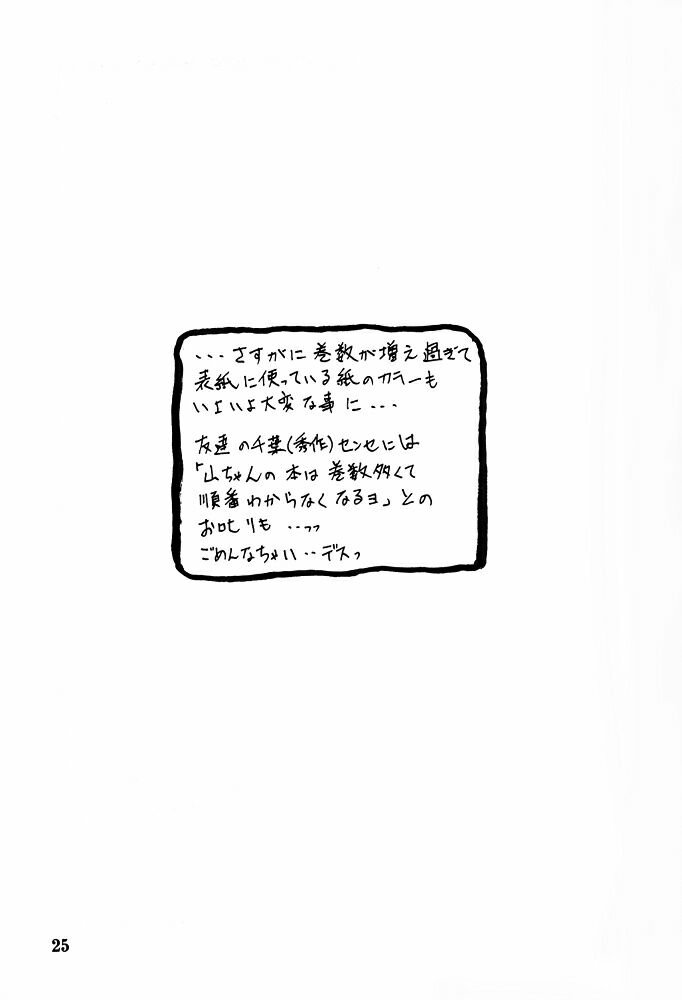 ...さすがに巻数が増え過ぎて
表紙に使っている紙のカラーも
いよいよ大変な事に...
友達の千葉(秀作)センセには
「山ちゃんの本は巻数多くて
順番わからなくなるヨ」との
お叱りも..っっ
ごめんなちゃい..デスっ
25